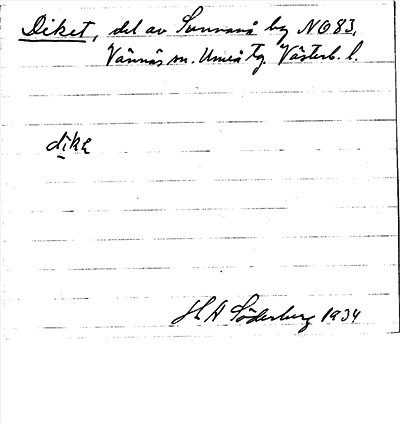 Diket, del av Sunnanå by NO83,
Vännäs sn. Umeå tg. Västerb. l.
dike
H A Söderberg 1934